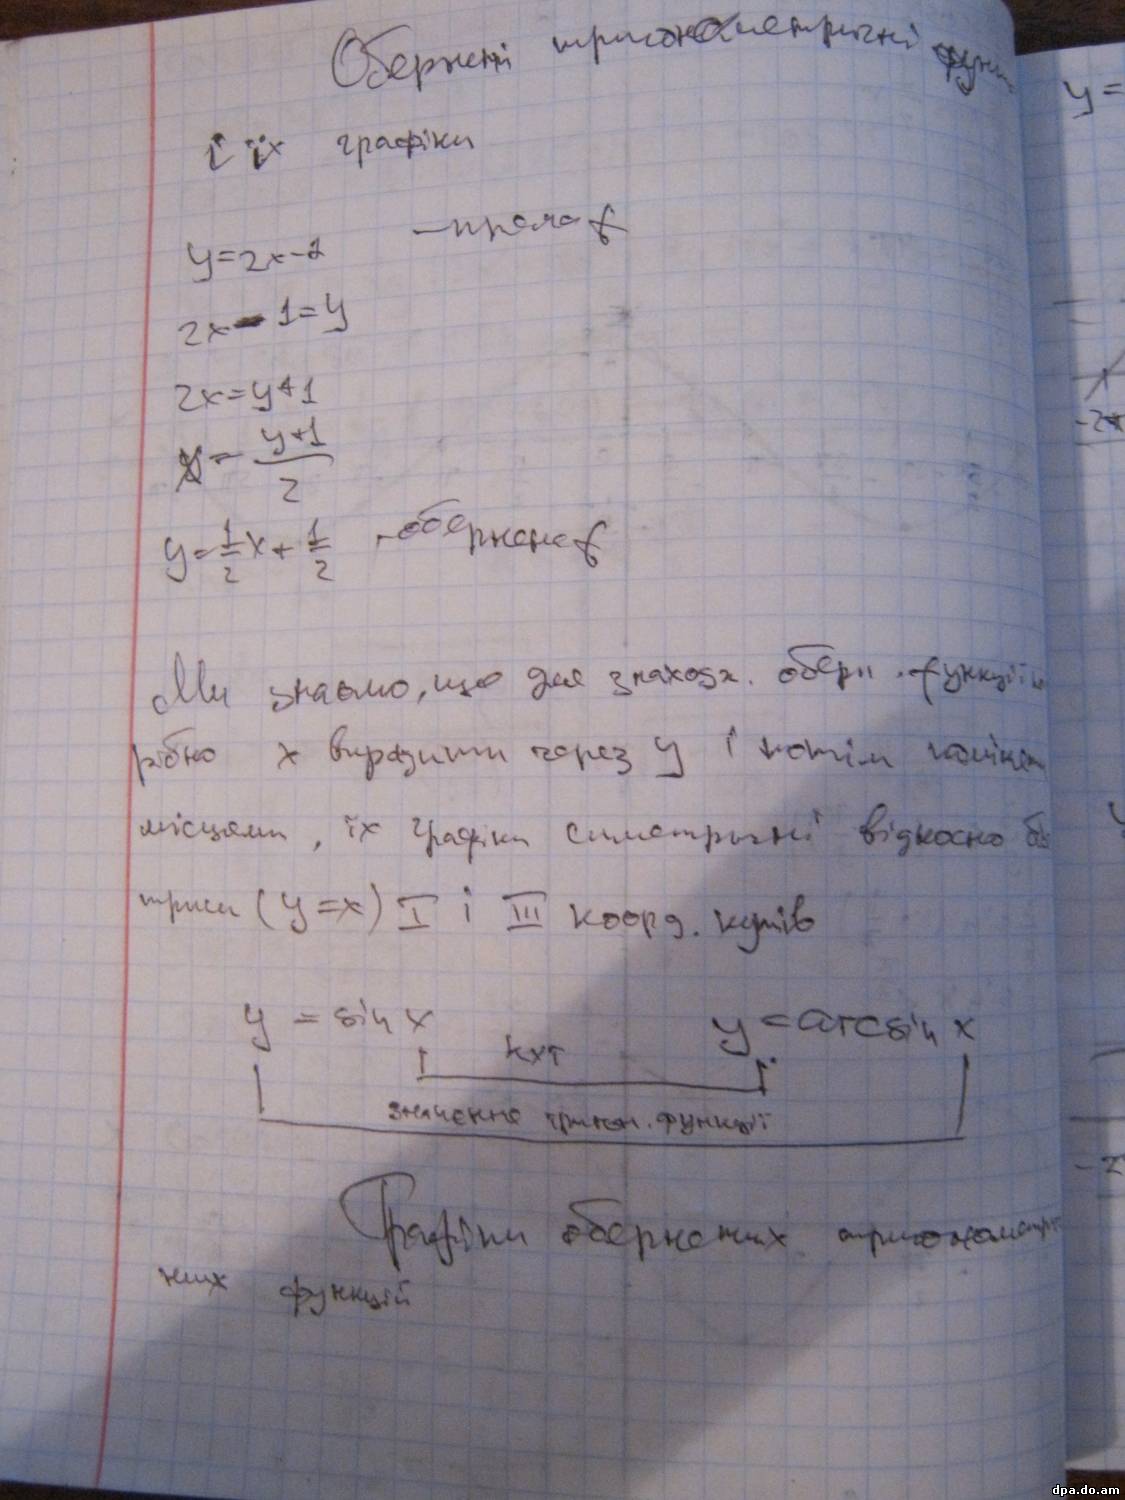 Обернені тригонометричні функ
і їх графіки
y=2x-1 – пряма f
2x-1=y
2x=y+1
x=\frac{y+1}{2}
y=\frac{1}{2}x+\frac{1}{2} - обернена f
Ми знаємо, що для знаходж. оберн. функції по
рібно x виразити через y і потім поміня
місцями, їх графіки симетричні відносно бі
триси (y=x) I і III коорд. кутів
y = sin x y = arcsin x
кут
значення тригон. функції
Графіки обернених тригонометри
них функцій
y =
-2
dpa.do.am